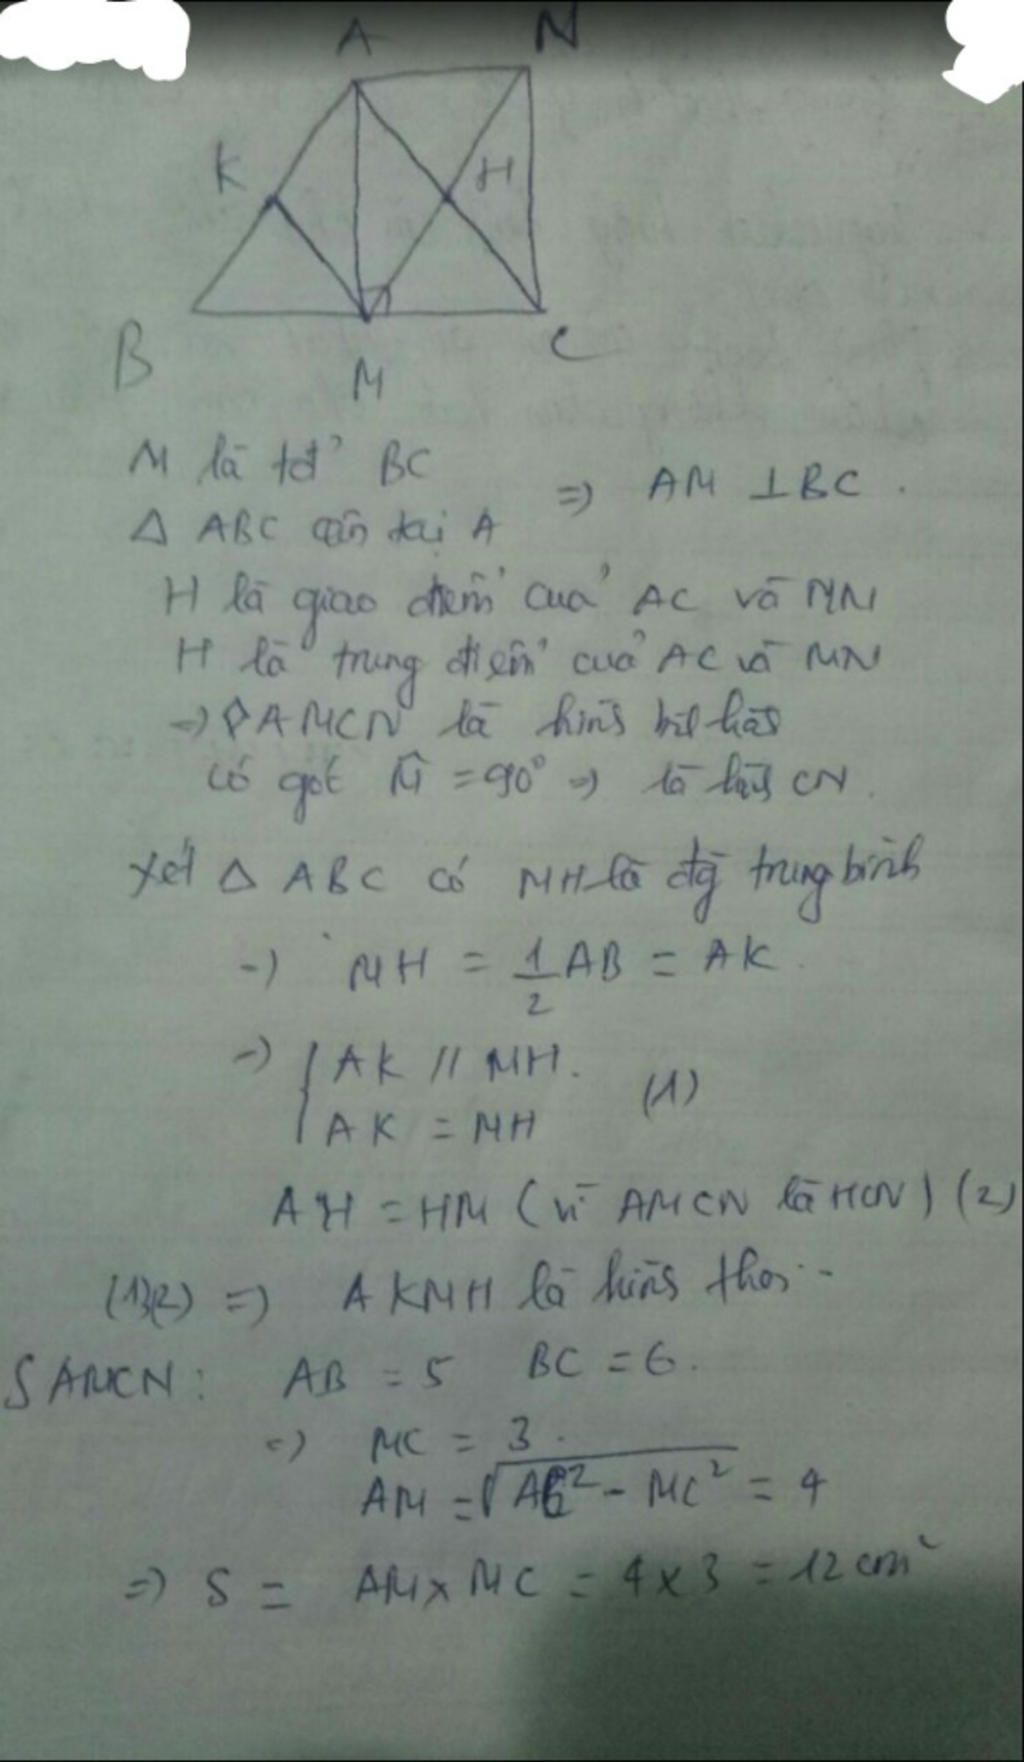 A N
K H
B M C
M là tđ' BC
=> AM ⊥ BC .
Δ ABC cân tại A
H là giao điểm của AC và MN
H là trung điểm của AC và MN
-> ◊ AMCN là hình bìl hàs
có gót M̂ = 90° => là hìs CN .
Xét Δ ABC có MH là đg trung bình
-> MH = 1/2 AB = AK .
-> { AK // MH .
AK = MH (1)
AH = HM ( vì AMCN là HCN ) (2)
(1)(2) => AKMH là hình thoi
SAMCN : AB = 5 BC = 6 .
=> MC = 3 .
AM = √AC² - MC² = 4
=> S = AM x MC = 4 x 3 = 12 cm²